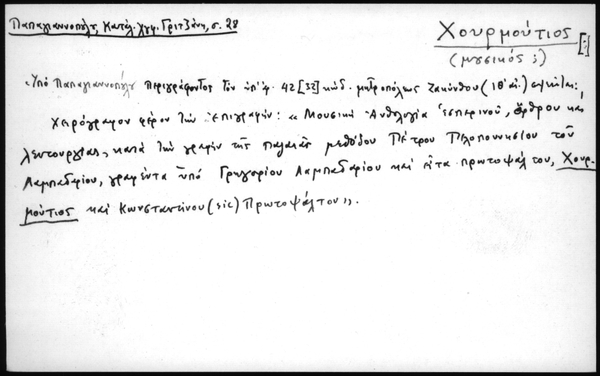 Παπαγιαννοπούλου, Κατάλ. χγφ. Γριτζάνη, σ. 28
Χουρμούτιος [:]
(μουσικός ;)
Ὑπό Παπαγιαννοπούλου περιγράφοντος τόν ὑπ' ἀ. 42 [32] κώδ. μητροπόλεως Ζακύνθου (ΙΘ' αἰ.)
Χειρόγραφον φέρον τήν ἐπιγραφήν: « Μουσική Ἀνθολογία Ἑσπερινοῦ, ὄρθρου και
λειτουργίας, κατά τήν γραφήν τῆς παλαιᾶς μεθόδου Πέτρου Πελοποννησίου τοῦ
Λαμπαδαρίου, γραφέντα ὑπό Γρηγορίου Λαμπαδαρίου καί εἶτα πρωτοψάλτου, Χουρ-
μούτιος καί Κωνσταντίνου (sic) Πρωτοψάλτου».